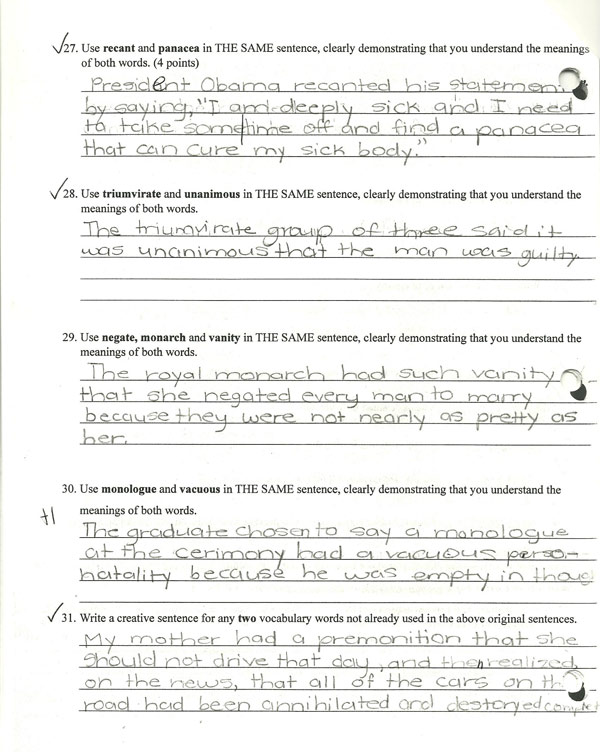 ✓27. Use recant and panacea in THE SAME sentence, clearly demonstrating that you understand the meanings
of both words. (4 points)
President Obama recanted his statemen
by saying, "I am deeply sick and I need
to take sometime off and find a panacea
that can cure my sick body."
✓28. Use triumvirate and unanimous in THE SAME sentence, clearly demonstrating that you understand the
meanings of both words.
The triumvirate group of three said it
was unanimous that the man was guilty.
29. Use negate, monarch and vanity in THE SAME sentence, clearly demonstrating that you understand the
meanings of both words.
The royal monarch had such vanity
that she negated every man to marry
because they were not nearly as pretty as
her.
30. Use monologue and vacuous in THE SAME sentence, clearly demonstrating that you understand the
+1 meanings of both words.
The graduate chosen to say a monologue
at the cerimony had a vacuous perso-
natality because he was empty in thoug
✓31. Write a creative sentence for any two vocabulary words not already used in the above original sentences.
My mother had a premonition that she
should not drive that day, and then realized,
on the news, that all of the cars on th
road had been annihilated and destoryed